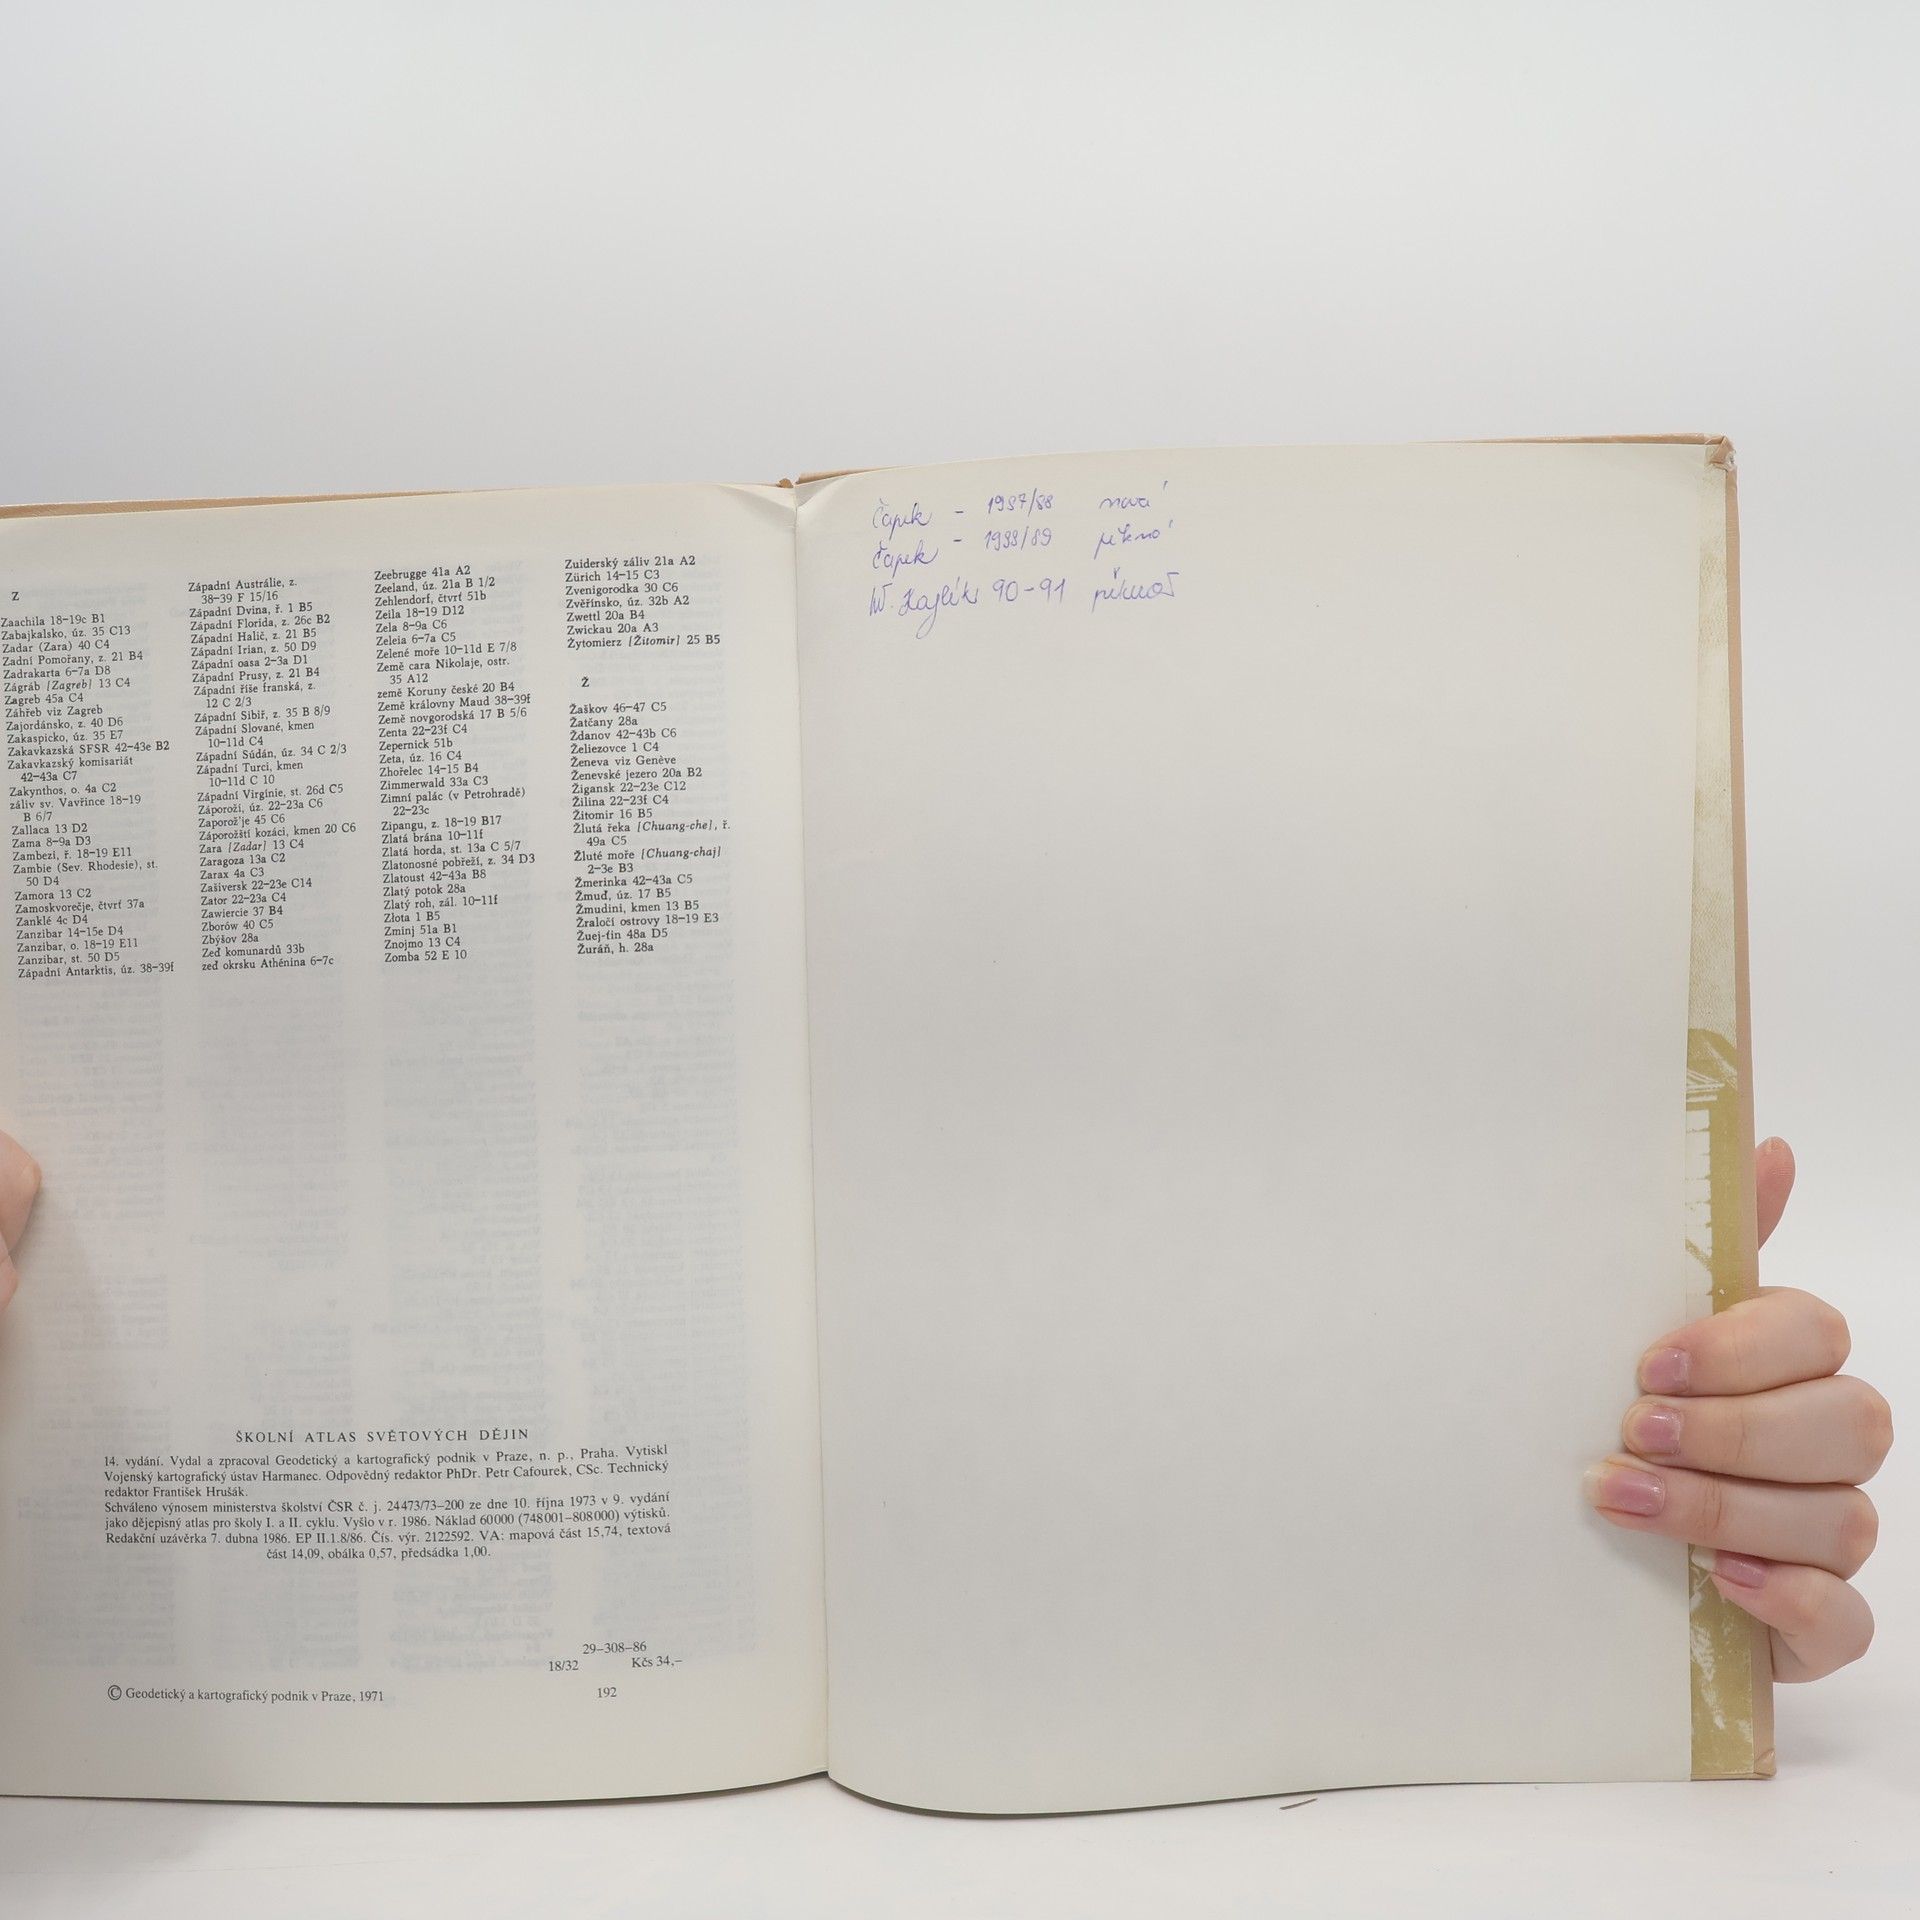 Z
Zaachila 18–19c B1
Zabajkalsko, úz. 35 C13
Zadar (Zara) 40 C4
Zadní Pomořany, z. 21 B4
Zadrakarta 6–7a D8
Zágráb [Zagreb] 13 C4
Zagreb 45a C4
Záhřeb viz Zagreb
Zajordánsko, z. 40 D6
Zakaspicko, úz. 35 E7
Zakavkazská SFSR 42–43e B2
Zakavkazský komisariát
42–43a C7
Zakynthos, o. 4a C2
záliv sv. Vavřince 18–19
B 6/7
Zallaca 13 D2
Zama 8–9a D3
Zambezi, ř. 18–19 E11
Zambie (Sev. Rhodesie), st.
50 D4
Zamora 13 C2
Zamoskvorečje, čtvrť 37a
Zanklé 4c D4
Zanzibar 14–15e D4
Zanzibar, o. 18–19 E11
Zanzibar, st. 50 D5
Západní Antarktis, úz. 38–39f
Západní Austrálie, z.
38–39 F 15/16
Západní Dvina, ř. 1 B5
Západní Florida, z. 26c B2
Západní Halič, z. 21 B5
Západní Irian, z. 50 D9
Západní oasa 2–3a D1
Západní Prusy, z. 21 B4
Západní říše franská, z.
12 C 2/3
Západní Sibiř, z. 35 B 8/9
Západní Slované, kmen
10–11d C4
Západní Súdán, úz. 34 C 2/3
Západní Turci, kmen
10–11d C 10
Západní Virgínie, st. 26d C5
Záporoží, úz. 22–23a C6
Zaporož'je 45 C6
Záporožští kozáci, kmen 20 C6
Zara [Zadar] 13 C4
Zaragoza 13a C2
Zarax 4a C3
Zašiversk 22–23e C14
Zator 22–23a C4
Zawiercie 37 B4
Zborów 40 C5
Zbýšov 28a
Zeď komunardů 33b
zeď okrsku Athénina 6–7c
Zeebrugge 41a A2
Zeeland, úz. 21a B 1/2
Zehlendorf, čtvrť 51b
Zeila 18–19 D12
Zela 8–9a C6
Zeleia 6–7a C5
Zelené moře 10–11d E 7/8
Země cara Nikolaje, ostr.
35 A12
země Koruny české 20 B4
Země královny Maud 38–39f
Země novgorodská 17 B 5/6
Zenta 22–23f C4
Zepernick 51b
Zeta, úz. 16 C4
Zhořelec 14–15 B4
Zimmerwald 33a C3
Zimní palác (v Petrohradě)
22–23c
Zipangu, z. 18–19 B17
Zlatá brána 10–11f
Zlatá horda, st. 13a C 5/7
Zlatonosné pobřeží, z. 34 D3
Zlatoust 42–43a B8
Zlatý potok 28a
Zlatý roh, zál. 10–11f
Złota 1 B5
Zminj 51a B1
Znojmo 13 C4
Zomba 52 E 10
Zuiderský záliv 21a A2
Zürich 14–15 C3
Zvenigorodka 30 C6
Zvěřínsko, úz. 32b A2
Zwettl 20a B4
Zwickau 20a A3
Żytomierz [Žitomir] 25 B5
Ž
Žaškov 46–47 C5
Žatčany 28a
Ždanov 42–43b C6
Želiezovce 1 C4
Ženeva viz Genève
Ženevské jezero 20a B2
Žigansk 22–23e C12
Žilina 22–23f C4
Žitomir 16 B5
Žlutá řeka [Chuang-che], ř.
49a C5
Žluté moře [Chuang-chaj]
2–3e B3
Žmerinka 42–43a C5
Žmuď, úz. 17 B5
Žmudini, kmen 13 B5
Žraločí ostrovy 18–19 E3
Žuej-ťin 48a D5
Žuráň, h. 28a
ŠKOLNÍ ATLAS SVĚTOVÝCH DĚJIN
14. vydání. Vydal a zpracoval Geodetický a kartografický podnik v Praze, n. p., Praha. Vytiskl
Vojenský kartografický ústav Harmanec. Odpovědný redaktor PhDr. Petr Cafourek, CSc. Technický
redaktor František Hrušák.
Schváleno výnosem ministerstva školství ČSR č. j. 24473/73–200 ze dne 10. října 1973 v 9. vydání
jako dějepisný atlas pro školy I. a II. cyklu. Vyšlo v r. 1986. Náklad 60000 (748001–808000) výtisků.
Redakční uzávěrka 7. dubna 1986. EP II.1.8/86. Čís. výr. 2122592. VA: mapová část 15,74, textová
část 14,09, obálka 0,57, předsádka 1,00.
29–308–86
18/32 Kčs 34,–
© Geodetický a kartografický podnik v Praze, 1971 192
Čapek – 1987/88 nová
Čapek – 1988/89 pěkná
90–91